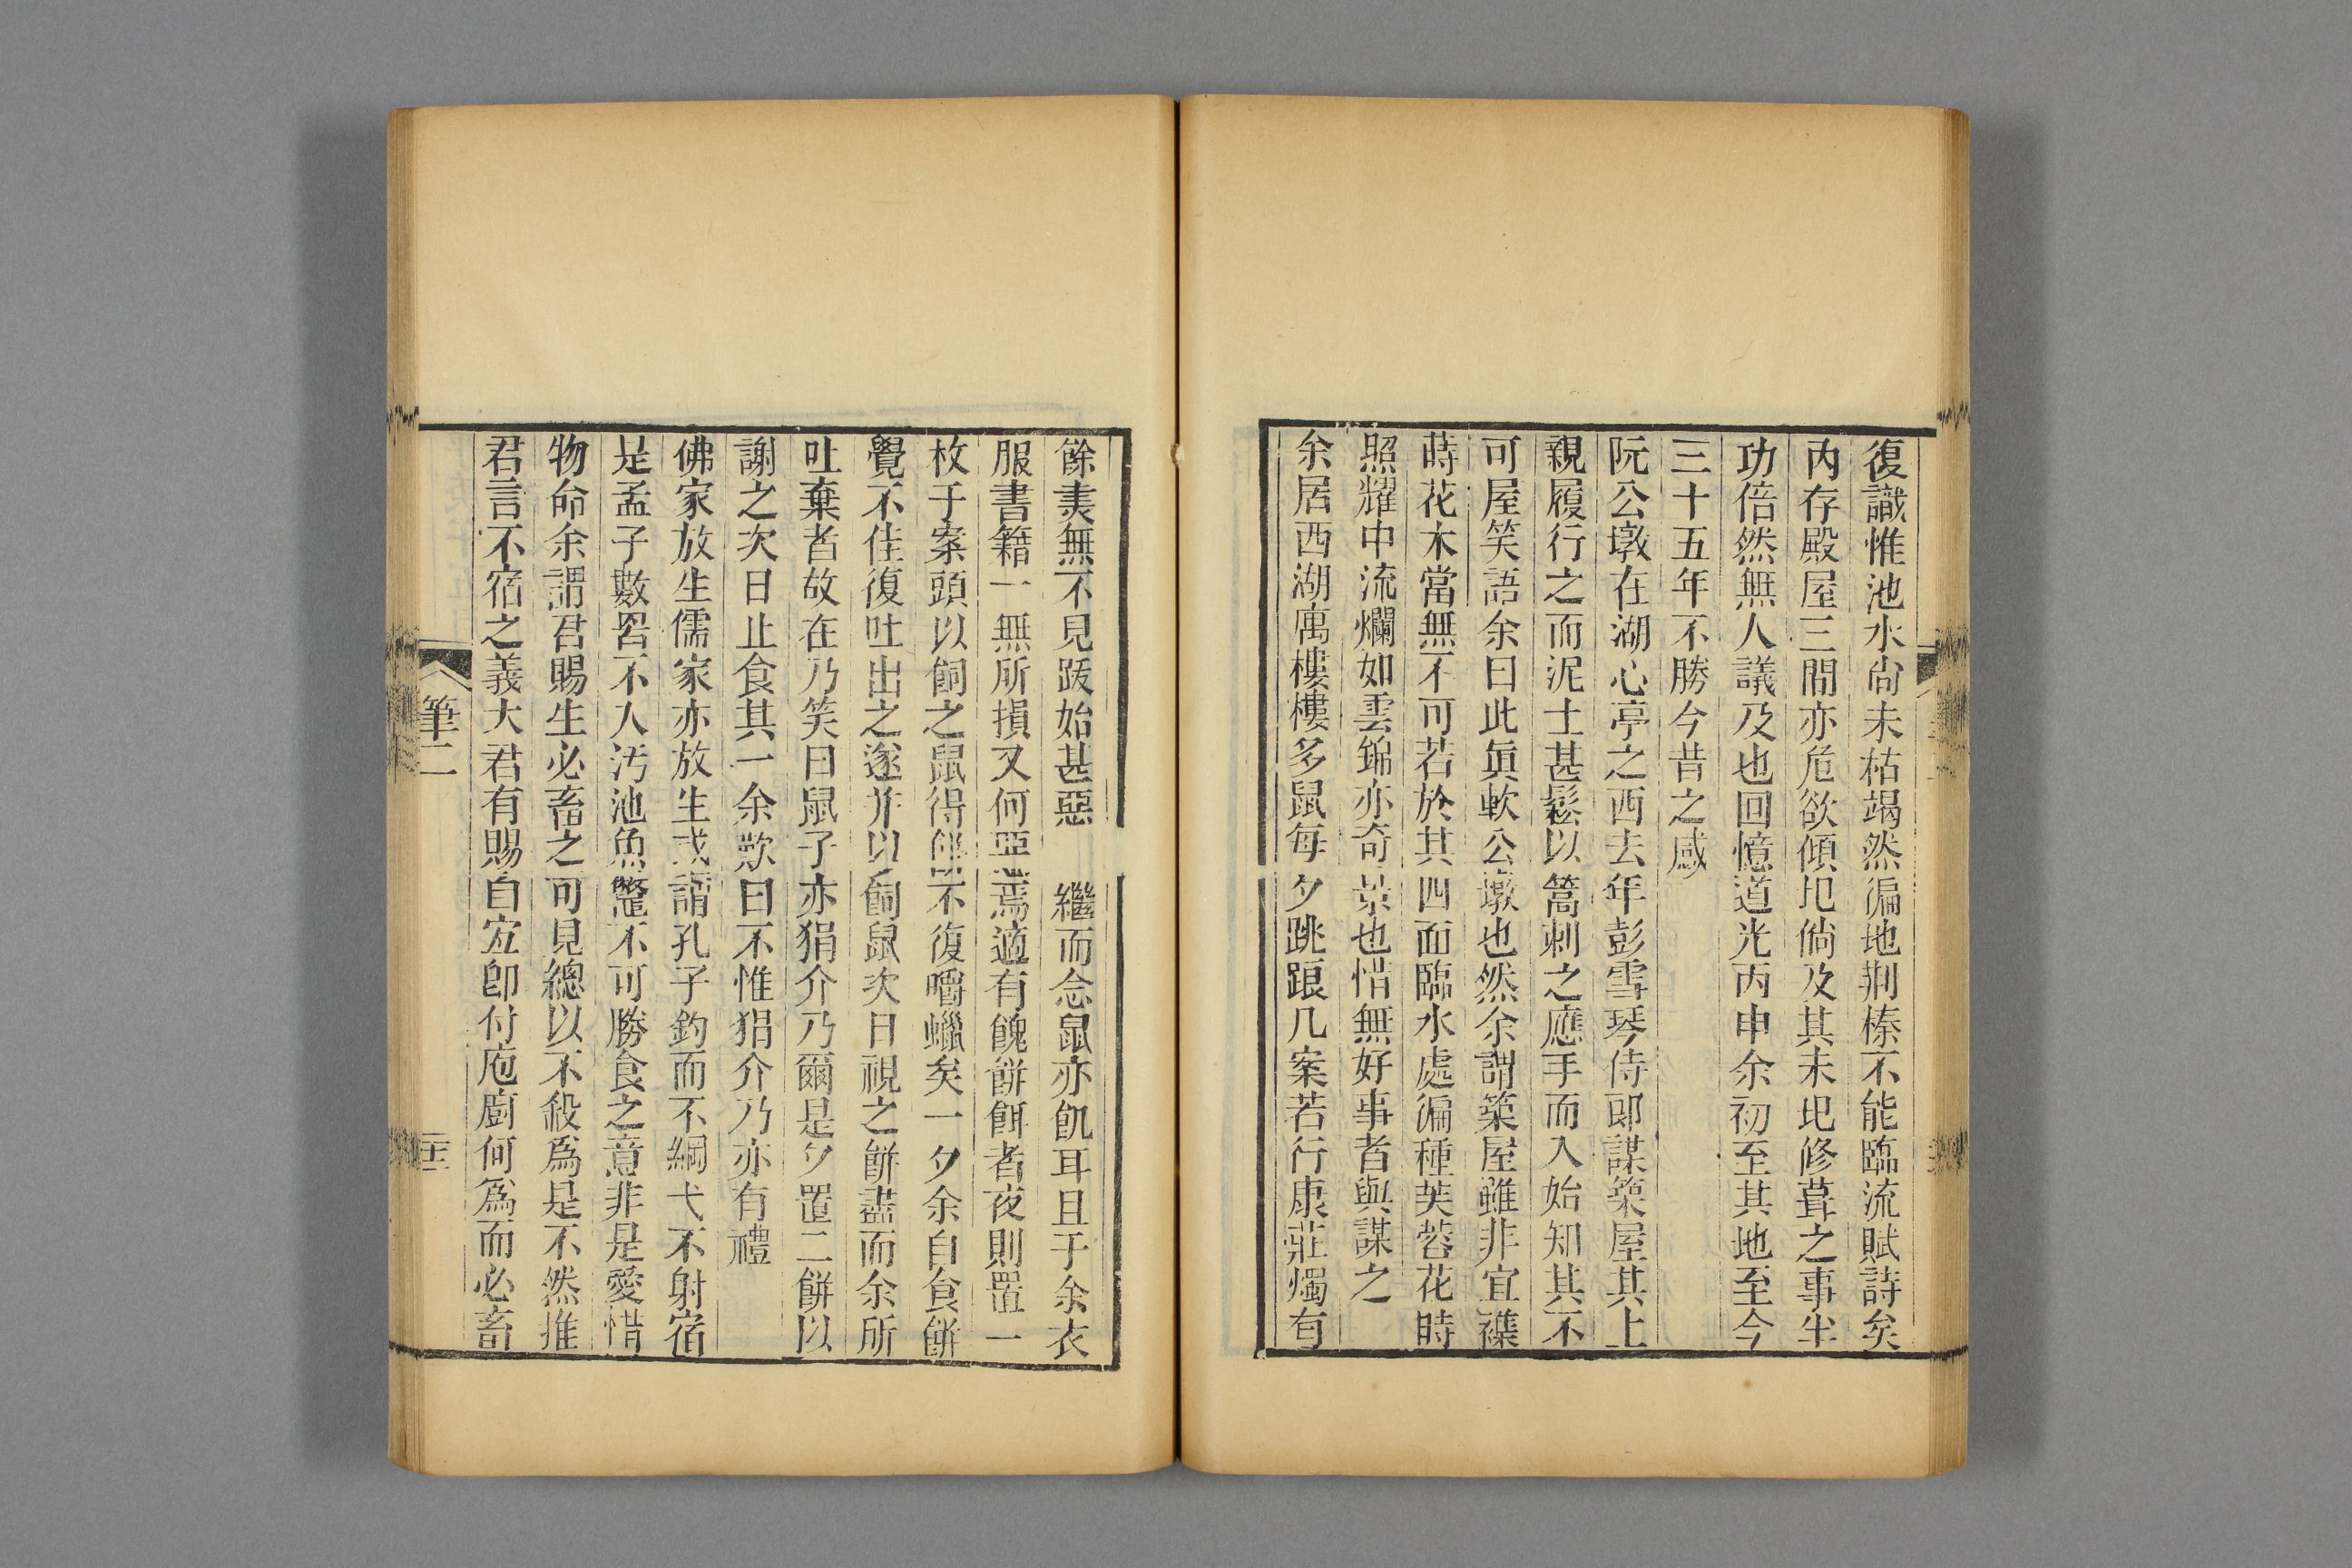 復識惟池水尙未枯竭然徧地荆榛不能臨流賦詩矣
内存殿屋三間亦危欲傾圯倘及其未圯修葺之事半
功倍然無人議及也回憶道光丙申余初至其地至今
三十五年不勝今昔之感
阮公墩在湖心亭之西去年彭雪琴侍郎謀築屋其上
親履行之而泥土甚鬆以篙刺之應手而入始知其不
可屋笑語余曰此眞軟公墩也然余謂築屋雖非宜襍
蒔花木當無不可若於其四面臨水處徧種芙蓉花時
照耀中流爛如雲錦亦奇景也惜無好事者與謀之
余居西湖寓樓樓多鼠每夕跳踉几案若行康莊燭有
餘㶳無不見跋始甚惡 繼而念鼠亦飢耳且于余衣
服書籍一無所損又何惡焉適有餽餅餌者夜則置一
枚于案頭以飼之鼠得餅不復嚼蠟矣一夕余自食餅
覺不佳復吐出之遂并以飼鼠次日視之餅盡而余所
吐棄者故在乃笑曰鼠子亦狷介乃爾是夕置二餅以
謝之次日止食其一余歎曰不惟狷介乃亦有禮
佛家放生儒家亦放生或謂孔子釣而不綱弋不射宿
是孟子數罟不入汚池魚鼈不可勝食之意非是愛惜
物命余謂君賜生必畜之可見總以不殺爲是不然推
君言不宿之義大君有賜自宜卽付庖廚何爲而必畜
筆二